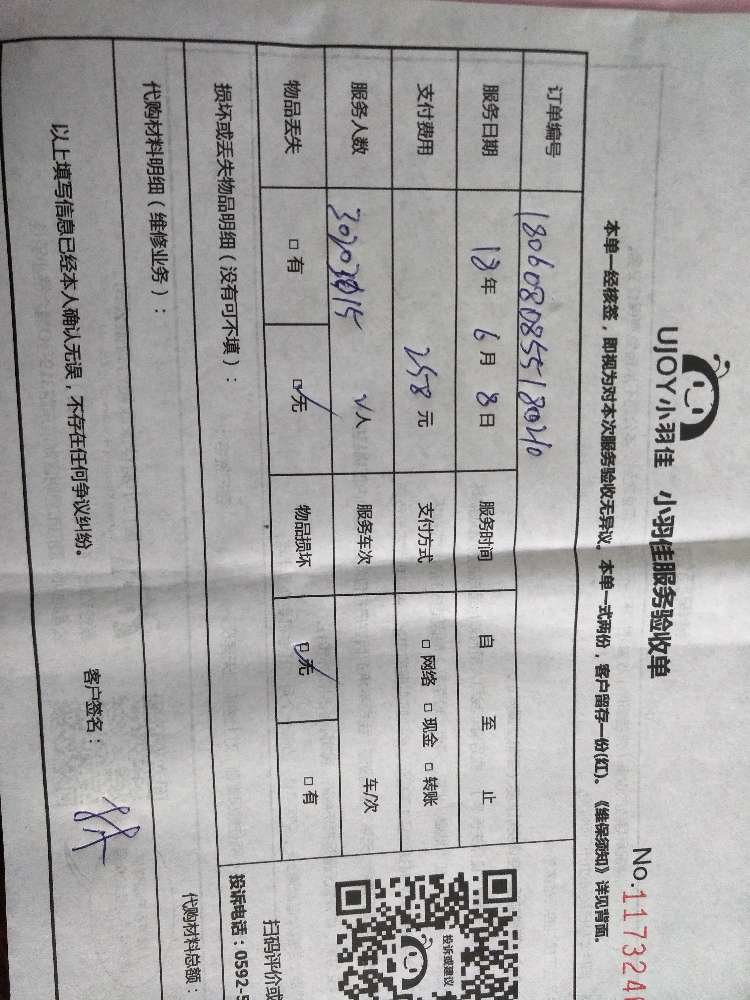 UJOY小羽佳 小羽佳服务验收单
No.117324
本单一经核签，即视为对本次服务验收无异议。本单一式两份，客户留存一份(红)。《维保须知》详见背面。
订单编号 180608085518020
服务日期 18年 6月 8日 服务时间 自 至 止
支付费用 258元 支付方式 □ 网络 □ 现金 □ 转账
服务人数 2人 服务车次 车/次
物品丢失 □ 有 □ 无 物品损坏 □ 无 □ 有
损坏或丢失物品明细（没有可不填）：
代购材料明细（维修业务）：
代购材料总额：
以上填写信息已经本人确认无误，不存在任何争议纠纷。
客户签名：
投诉或建议
扫码评价或
投诉电话：0592-5